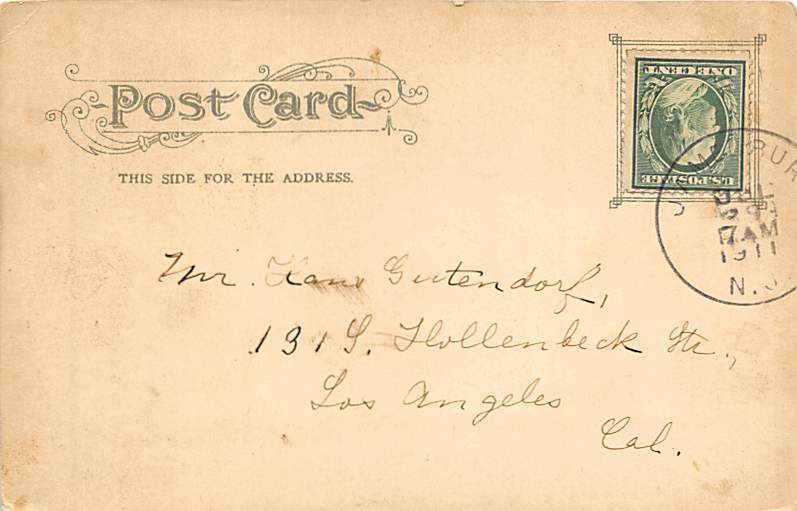 Post Card
THIS SIDE FOR THE ADDRESS.
U.S. POSTAGE
ONE CENT
JUL
7 AM
1911
N.J.
Mr. Hans Gutendorf,
131 S. Hollenbeck Str.,
Los Angeles
Cal.